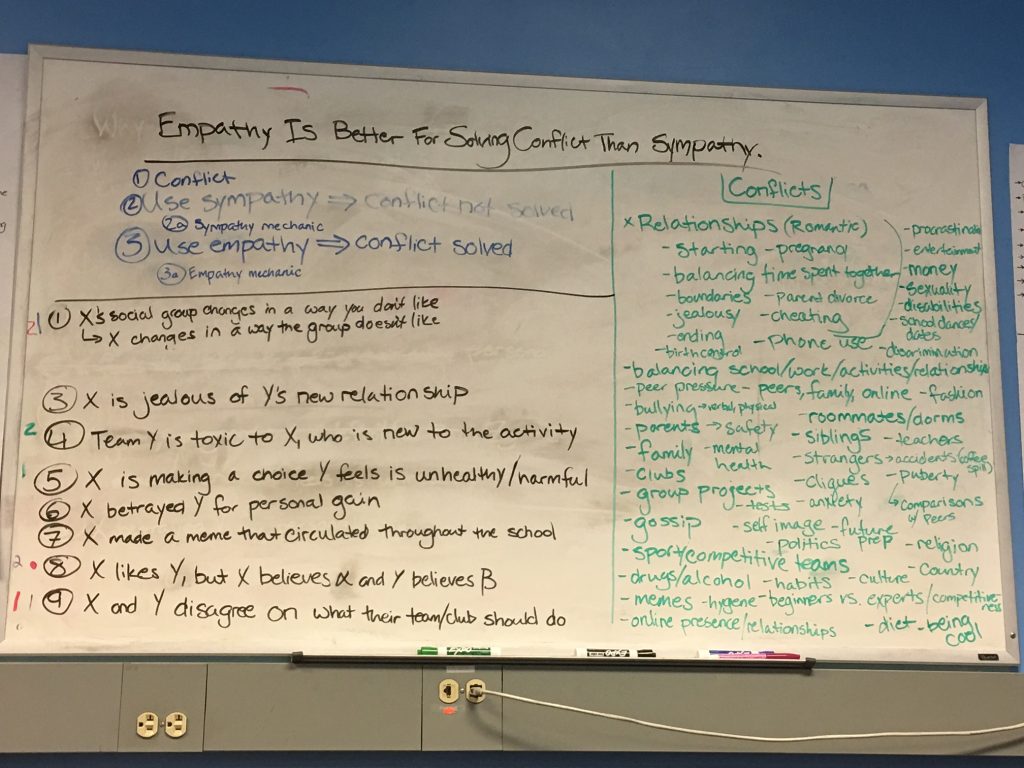 Why Empathy Is Better For Solving Conflict Than Sympathy.
① Conflict
② Use sympathy ⇒ conflict not solved
2a Sympathy mechanic
③ Use empathy ⇒ conflict solved
3a Empathy mechanic
2 1 ① X's social group changes in a way you don't like
↳ X changes in a way the group doesn't like
③ X is jealous of Y's new relationship
2 ④ Team Y is toxic to X, who is new to the activity
1 ⑤ X is making a choice Y feels is unhealthy/harmful
⑥ X betrayed Y for personal gain
⑦ X made a meme that circulated throughout the school
2 • ⑧ X likes Y, but X believes α and Y believes β
1 1 ⑨ X and Y disagree on what their team/club should do
Conflicts
x Relationships (Romantic)
- starting - pregnancy
- balancing time spent together
- boundaries - parent divorce
- jealousy - cheating
- ending - phone use
- birth control
- procrastinate
- entertainment
- money
- sexuality
- disabilities
- school dances/
dates
- discrimination
- balancing school/work/activities/relationships
- peer pressure - peers, family, online - fashion
- bullying → verbal, physical - roommates/dorms
- parents → safety - siblings - teachers
- family - mental health - strangers → accidents (coffee spill)
- clubs - cliques - puberty
↳ comparisons w/ peers
- group projects - tests - anxiety
- gossip - self image - future prep
- politics - religion
- sport/competitive teams - country
- drugs/alcohol - habits - culture
- memes - hygiene - beginners vs. experts/competitiveness
- online presence/relationships - diet - being cool
expo